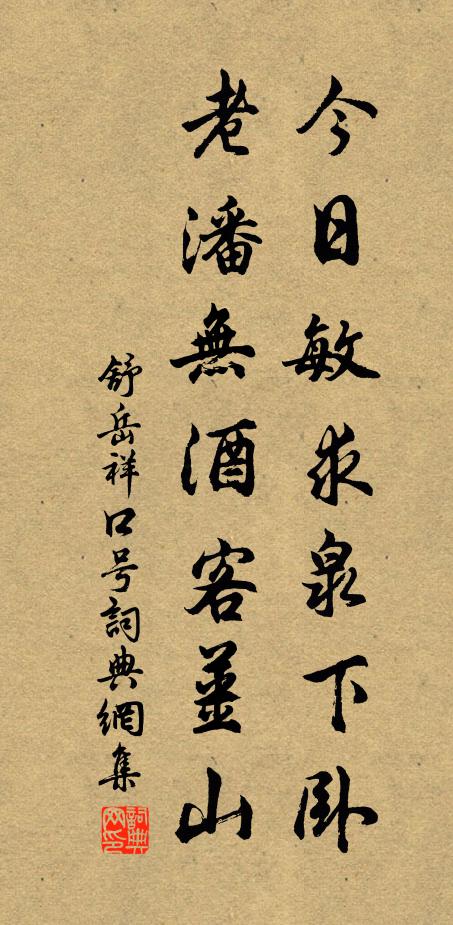 今日敏求泉下卧
老潘無酒客薑山
舒岳祥口号詞典網集
詞典网印